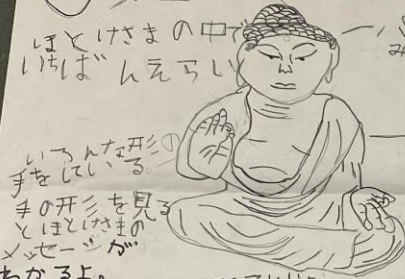 ほとけさまの中で
いちばんえらい
いろんな形の
手をしている。
手の形を見る
とほとけさまの
メッセージが
わかるよ。